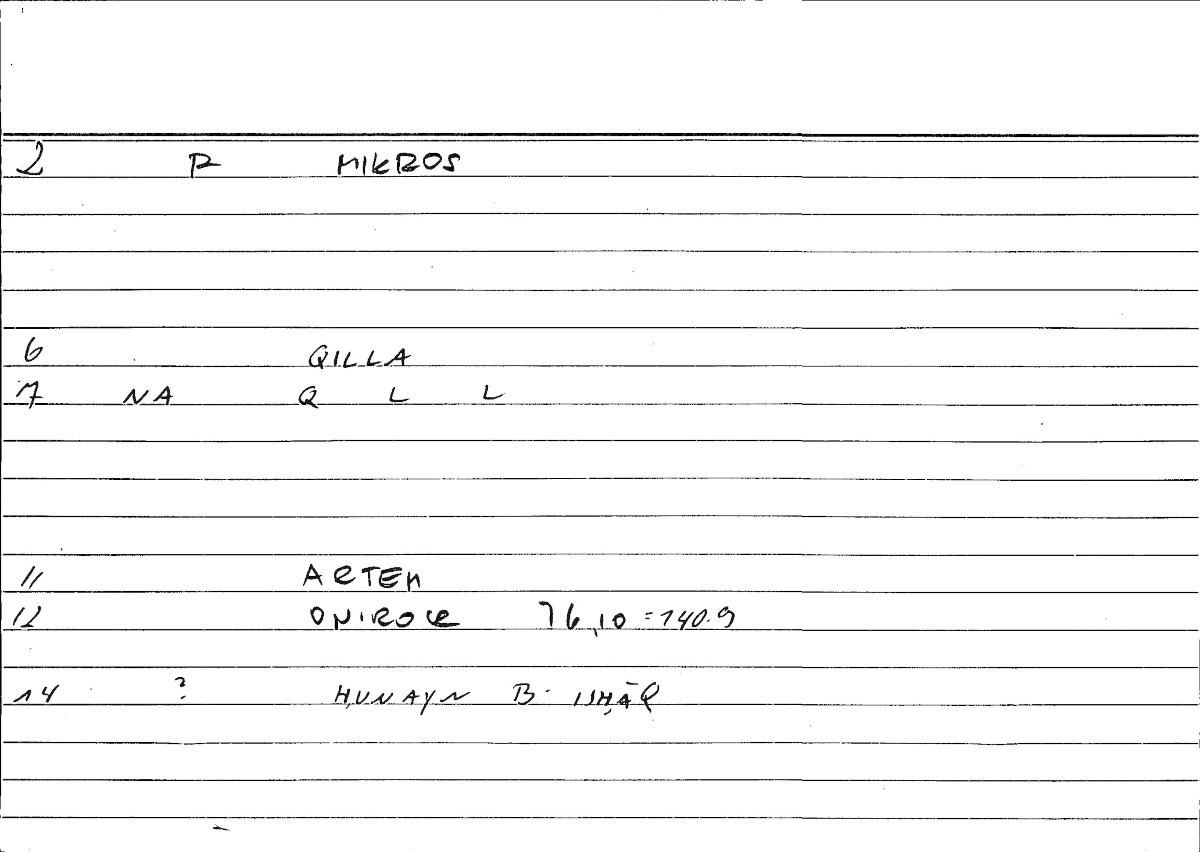 2 R MIKROS
6 QILLA
17 NA Q L L
11 ARTEM
12 ONIROCR 76,10 = 140.9
14 ? ḤUNAYN B. ISḤĀQ